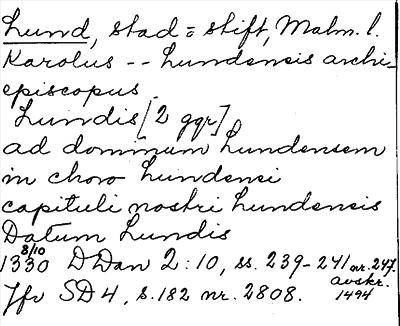 Lund, stad = stift, Malm. l.
Karolus -- Lundensis archi-
episcopus
Lundis [2 ggr]
ad dominum Lundensem
in choro Lundensi
capituli nostri Lundensis
Datum Lundis
1330 8/10 DDan 2:10, ss. 239-241 nr. 247.
avskr.
1494
Jfr SD 4, s. 182 nr. 2808.